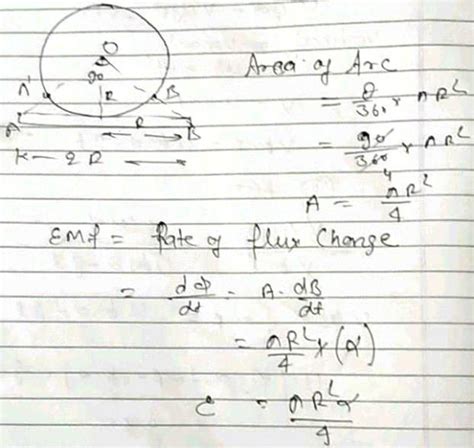 O
90
A' R B
A' R B
K— 2R —
Area of Arc
= θ/360 × πR²
= 90/360 × πR²
4
A = πR²/4
EMf = Rate of flux Change
= dΦ/dt = A · dB/dt
= πR²/4 × (α)
e = πR²α/4